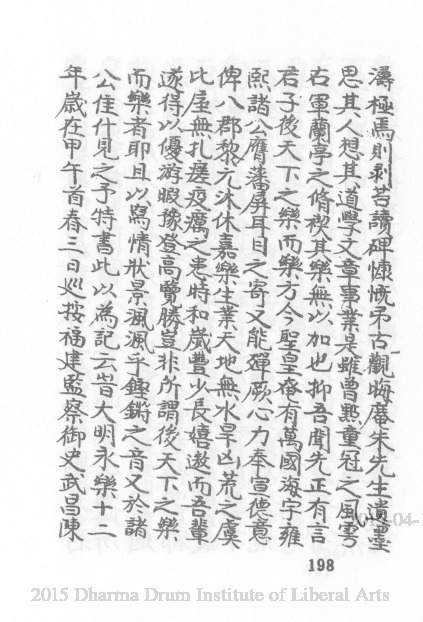 濤極焉則剥苔讀碑慷慨弔古觀晦庵朱先生遺墨
思其人想其道學文章事業是雖曾點童冠之風雩
右軍蘭亭之脩禊其樂無以加也抑吾聞先正有言
君子後天下之樂而樂方今聖皇奄有萬國海宇雍
熙諸公膺藩屏耳目之寄又能殫厥心力奉宣德意
俾八郡黎元沐休嘉樂生業天地無水旱凶荒之虞
比屋無扎瘥疫癘之患時和歲豐少長嬉遨而吾輩
遂得以優游暇豫登高覽勝豈非所謂後天下之樂
而樂者耶且以寫情狀景渢渢乎鏗鏘之音又於諸
公佳什見之予特書此以為記云旹大明永樂十二
年歲在甲午首春三日巡按福建監察御史武昌陳
198
2015 Dharma Drum Institute of Liberal Arts